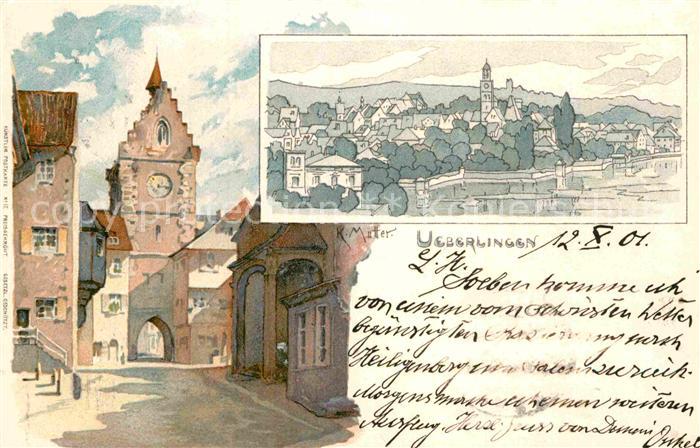 KÜNSTLER POSTKARTE
PREISGEKRÖNT.
GESETZL. GESCHÜTZT.
K. Mutter.
UEBERLINGEN 12. X. 01.
L. H.
Soeben komme ich
von einem vom schönsten Wetter
begünstigten nach
Heiligenberg zurück.
Morgens mache ich einen weiteren
Ausflug. Herzl. Gruss von Deinem Onkel